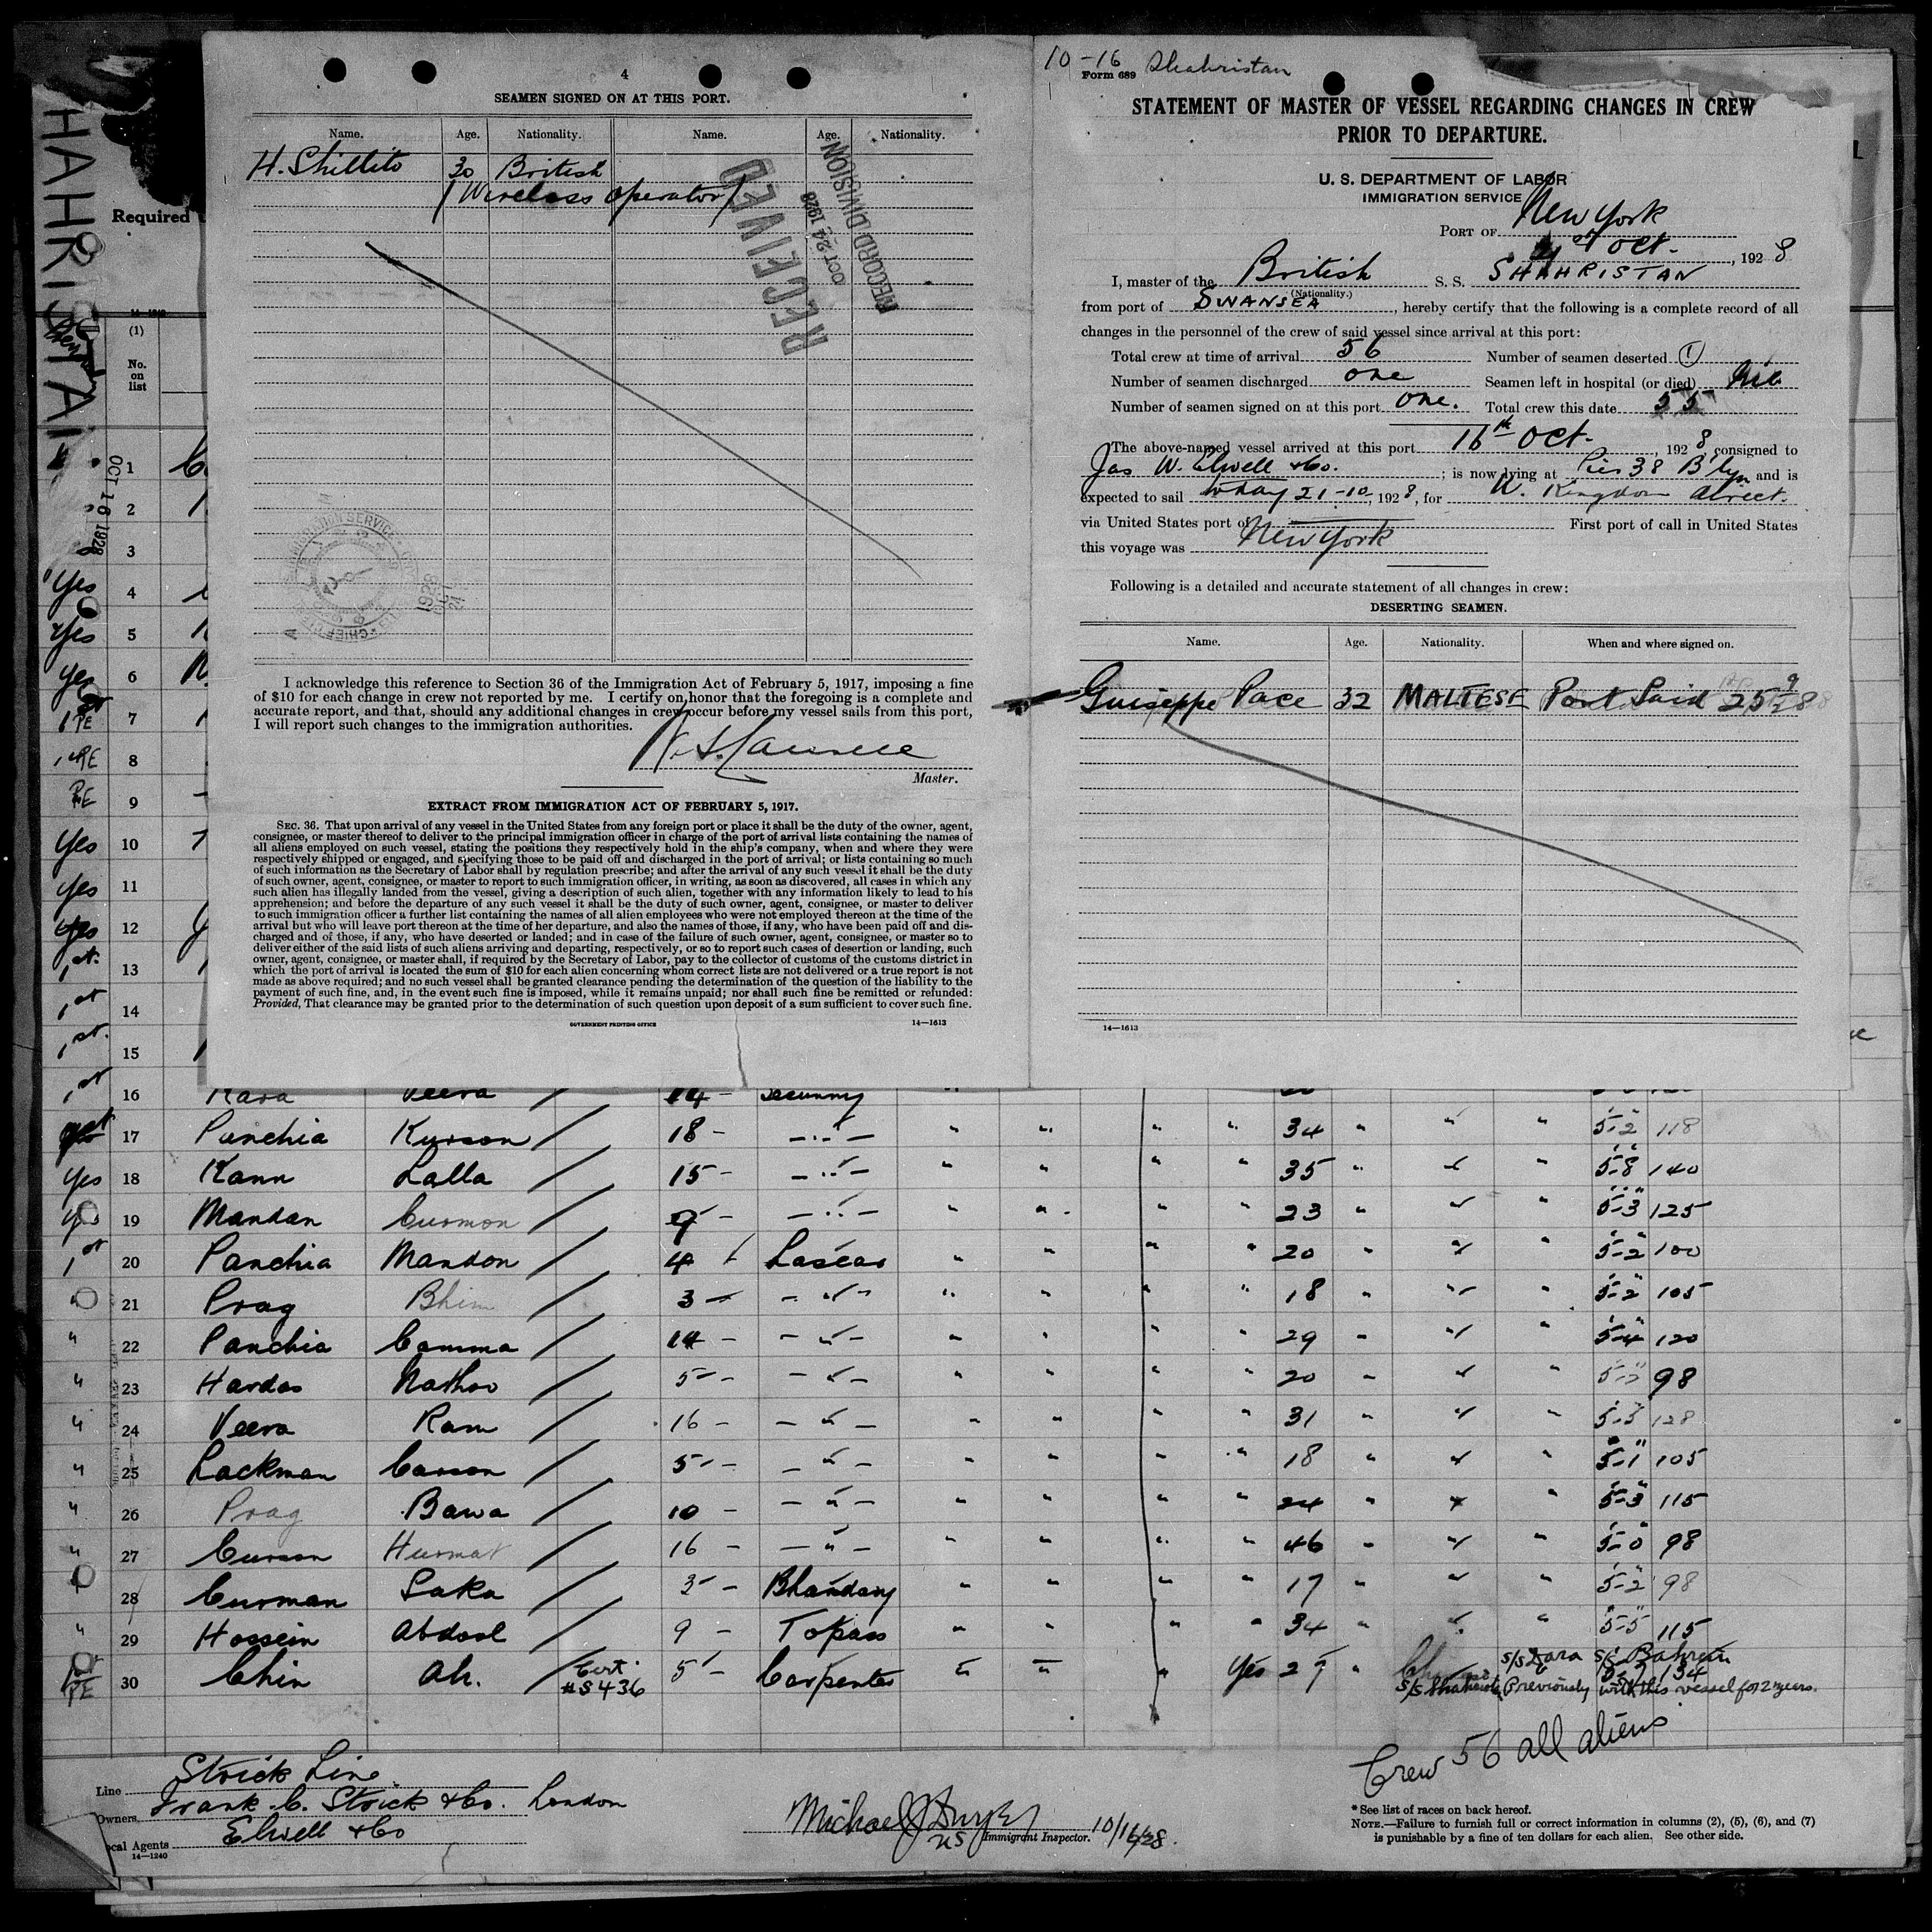 4
SEAMEN SIGNED ON AT THIS PORT.
Name. Age. Nationality. Name. Age. Nationality.
H. Shillito 30 British
(Wireless operator)
RECEIVED
OCT 24 1928
RECORD DIVISION
I acknowledge this reference to Section 36 of the Immigration Act of February 5, 1917, imposing a fine
of $10 for each change in crew not reported by me. I certify on honor that the foregoing is a complete and
accurate report, and that, should any additional changes in crew occur before my vessel sails from this port,
I will report such changes to the immigration authorities.
Master.
EXTRACT FROM IMMIGRATION ACT OF FEBRUARY 5, 1917.
SEC. 36. That upon arrival of any vessel in the United States from any foreign port or place it shall be the duty of the owner, agent,
consignee, or master thereof to deliver to the principal immigration officer in charge of the port of arrival lists containing the names of
all aliens employed on such vessel, stating the positions they respectively hold in the ship's company, when and where they were
respectively shipped or engaged, and specifying those to be paid off and discharged in the port of arrival; or lists containing so much
of such information as the Secretary of Labor shall by regulation prescribe; and after the arrival of any such vessel it shall be the duty
of such owner, agent, consignee, or master to report to such immigration officer, in writing, as soon as discovered, all cases in which any
such alien has illegally landed from the vessel, giving a description of such alien, together with any information likely to lead to his
apprehension; and before the departure of any such vessel it shall be the duty of such owner, agent, consignee, or master to deliver
to such immigration officer a further list containing the names of all alien employees who were not employed thereon at the time of the
arrival but who will leave port thereon at the time of her departure, and also the names of those, if any, who have been paid off and dis-
charged and of those, if any, who have deserted or landed; and in case of the failure of such owner, agent, consignee, or master so to
deliver either of the said lists of such aliens arriving and departing, respectively, or so to report such cases of desertion or landing, such
owner, agent, consignee, or master shall, if required by the Secretary of Labor, pay to the collector of customs of the customs district in
which the port of arrival is located the sum of $10 for each alien concerning whom correct lists are not delivered or a true report is not
made as above required; and no such vessel shall be granted clearance pending the determination of the question of the liability to the
payment of such fine, and, in the event such fine is imposed, while it remains unpaid; nor shall such fine be remitted or refunded:
Provided, That clearance may be granted prior to the determination of such question upon deposit of a sum sufficient to cover such fine.
GOVERNMENT PRINTING OFFICE 14—1613
10-16 Shahristan
Form 689
STATEMENT OF MASTER OF VESSEL REGARDING CHANGES IN CREW
PRIOR TO DEPARTURE.
U. S. DEPARTMENT OF LABOR
IMMIGRATION SERVICE
PORT OF New York
21st Oct., 1928
I, master of the British S. S. SHAHRISTAN
(Nationality.)
from port of SWANSEA, hereby certify that the following is a complete record of all
changes in the personnel of the crew of said vessel since arrival at this port:
Total crew at time of arrival 56 Number of seamen deserted (1)
Number of seamen discharged one Seamen left in hospital (or died) Nil
Number of seamen signed on at this port one. Total crew this date 55
The above-named vessel arrived at this port 16th Oct., 1928, consigned to
Jas W. Elwell & Co.; is now lying at Pier 38 B'lyn and is
expected to sail today 21-10, 1928, for U. Kingdom direct.
via United States port of First port of call in United States
this voyage was New York
Following is a detailed and accurate statement of all changes in crew:
DESERTING SEAMEN.
Name. Age. Nationality. When and where signed on.
Guiseppe Pace 32 MALTESE Port Said 25 9/28
14—1613
Required
(1)
No.
on
list
OCT 16 1928
1
2
3
Yes 4
Yes 5
Yes 6
7
8
PE 9
Yes 10
Yes 11
Yes 12
1st 13
1st 14
1st 15
1st 16 Kara Veera 14 - Secunny
17 Panchia Kurson 18 - -"- " " " " 34 " " " 5-2 118
Yes 18 Kann Lalla 15 - -"- " " " " 35 " " " 5-8 140
Yes 19 Mandan Curmon 9 - -"- " " " " 23 " " " 5-3 125
1st 20 Panchia Mandon 4 Lascar " " " " 20 " " " 5-2 100
" 21 Prag Bhim 3 - -"- " " " " 18 " " " 5-2 105
" 22 Panchia Camma 14 - -"- " " " " 29 " " " 5-4 120
" 23 Hardas Nathoo 5 - -"- " " " " 20 " " " 98
" 24 Veera Ram 16 - -"- " " " " 31 " " " 5-3 128
" 25 Lackman Carson 5 - -"- " " " " 18 " " " 5-1 105
" 26 Prag Bawa 10 - -"- " " " " 24 " " " 5-3 115
" 27 Curson Hurmat 16 - -"- " " " " 46 " " " 5-0 98
28 Curman Laka 3 - Bhandary " " " " 17 " " " 5-2 98
" 29 Hossein Abdool 9 - Topass " " " " 34 " " " 5-5 115
PE 30 Chin Ah. Cert. #S436 5 - Carpenter " " " Yes 27 " 134
Previously with this vessel for 2 years.
Crew 56 all aliens
Line Strick Line
Owners Frank C. Strick & Co. London
Local Agents Elwell & Co
14—1240
Michael J Dwyer
US Immigrant Inspector. 10/16/28.
*See list of races on back hereof.
NOTE.—Failure to furnish full or correct information in columns (2), (5), (6), and (7)
is punishable by a fine of ten dollars for each alien. See other side.